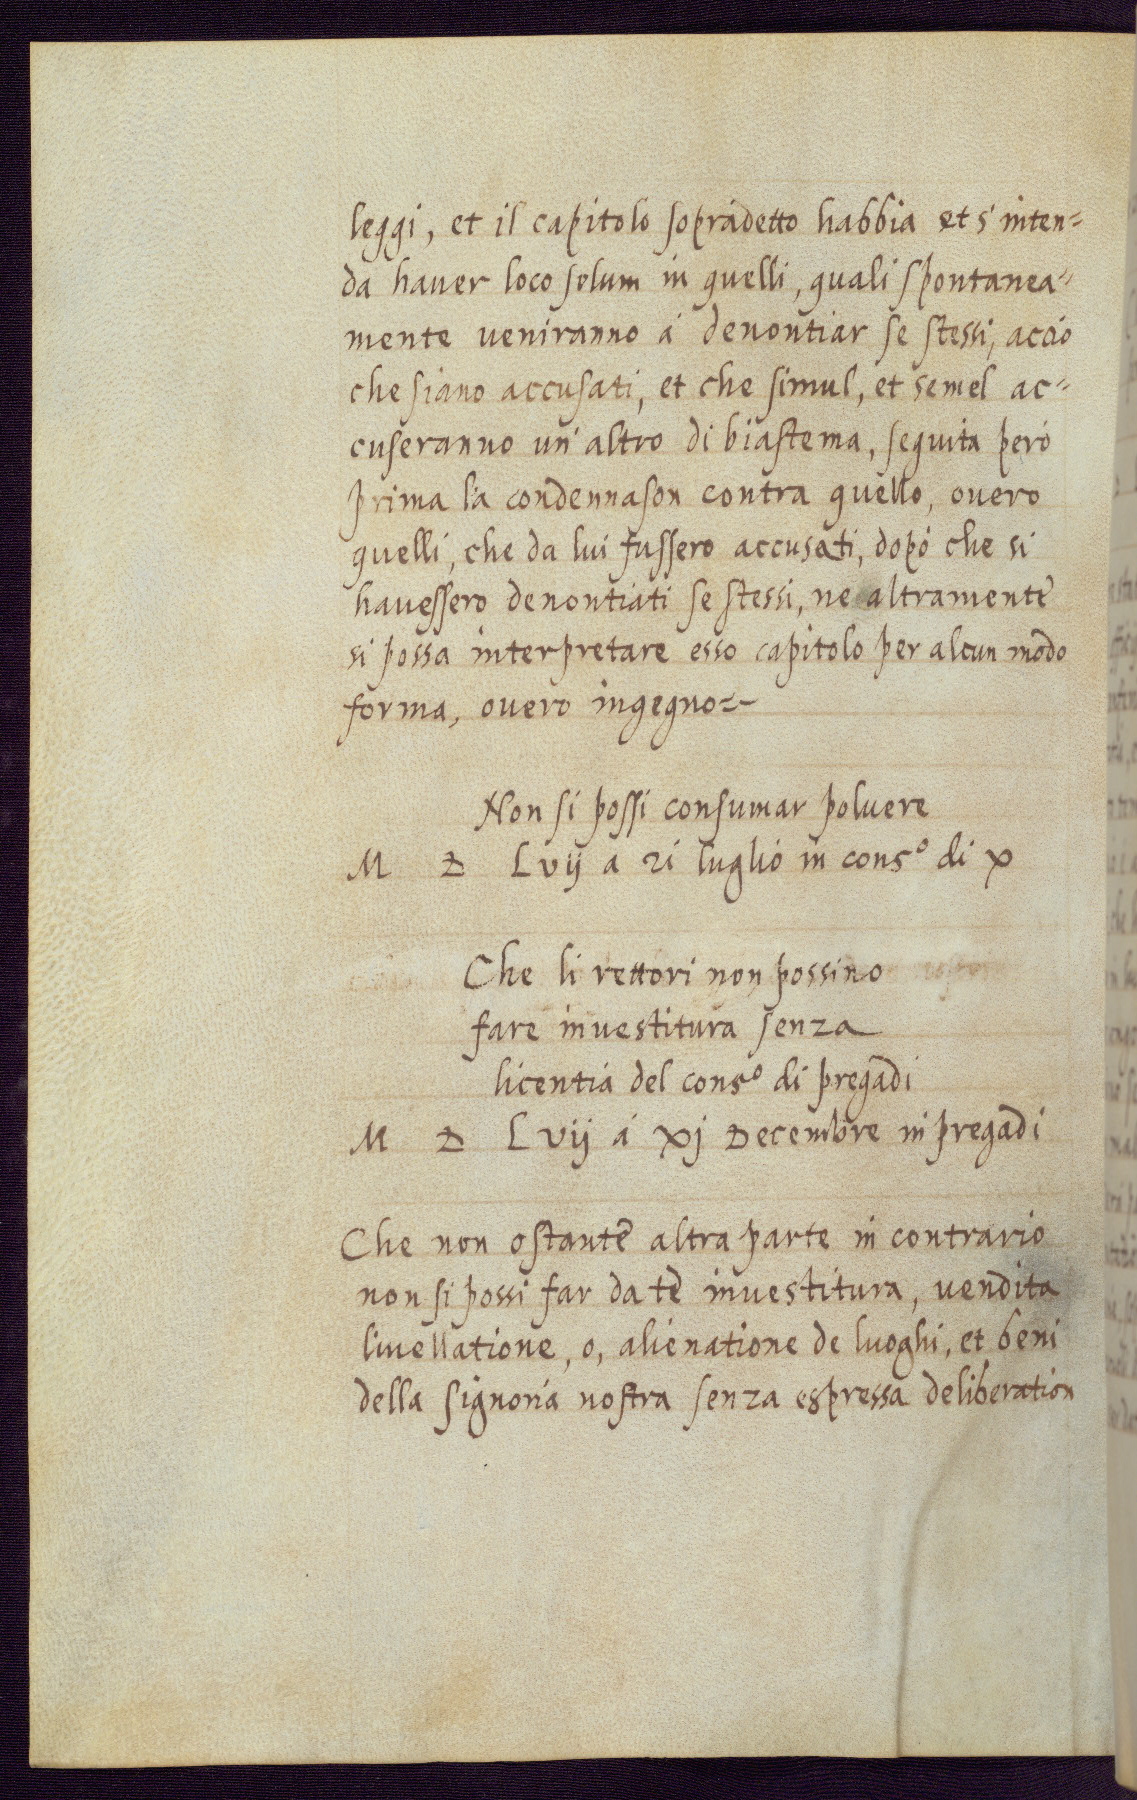 leggi, et il capitolo sopradetto habbia et s'inten=
da haver loco solum in quelli, quali spontanea=
mente veniranno á denontiar se stessi, accio
che siano accusati, et che simul, et semel ac=
cuseranno un'altro di biastema, seguita peró
prima la condennason contra quello, overo
quelli, che da lui fussero accusati, dopó che si
havessero denontiati se stessi, ne altramente
si possa interpretare esso capitolo per alcun modo
forma, overo ingegno=-
Non si possi consumar polvere
M D Lvij a 21 luglio in cons.º di x
Che li rettori non possino
fare investitura senza
licentia del cons.º di pregadi
M D Lvij á xj Decembre in pregadi
Che non ostante altra parte in contrario
non si possi far date investitura, vendita
livellatione, o, alienatione de luoghi, et beni
della signoria nostra senza espressa deliberation